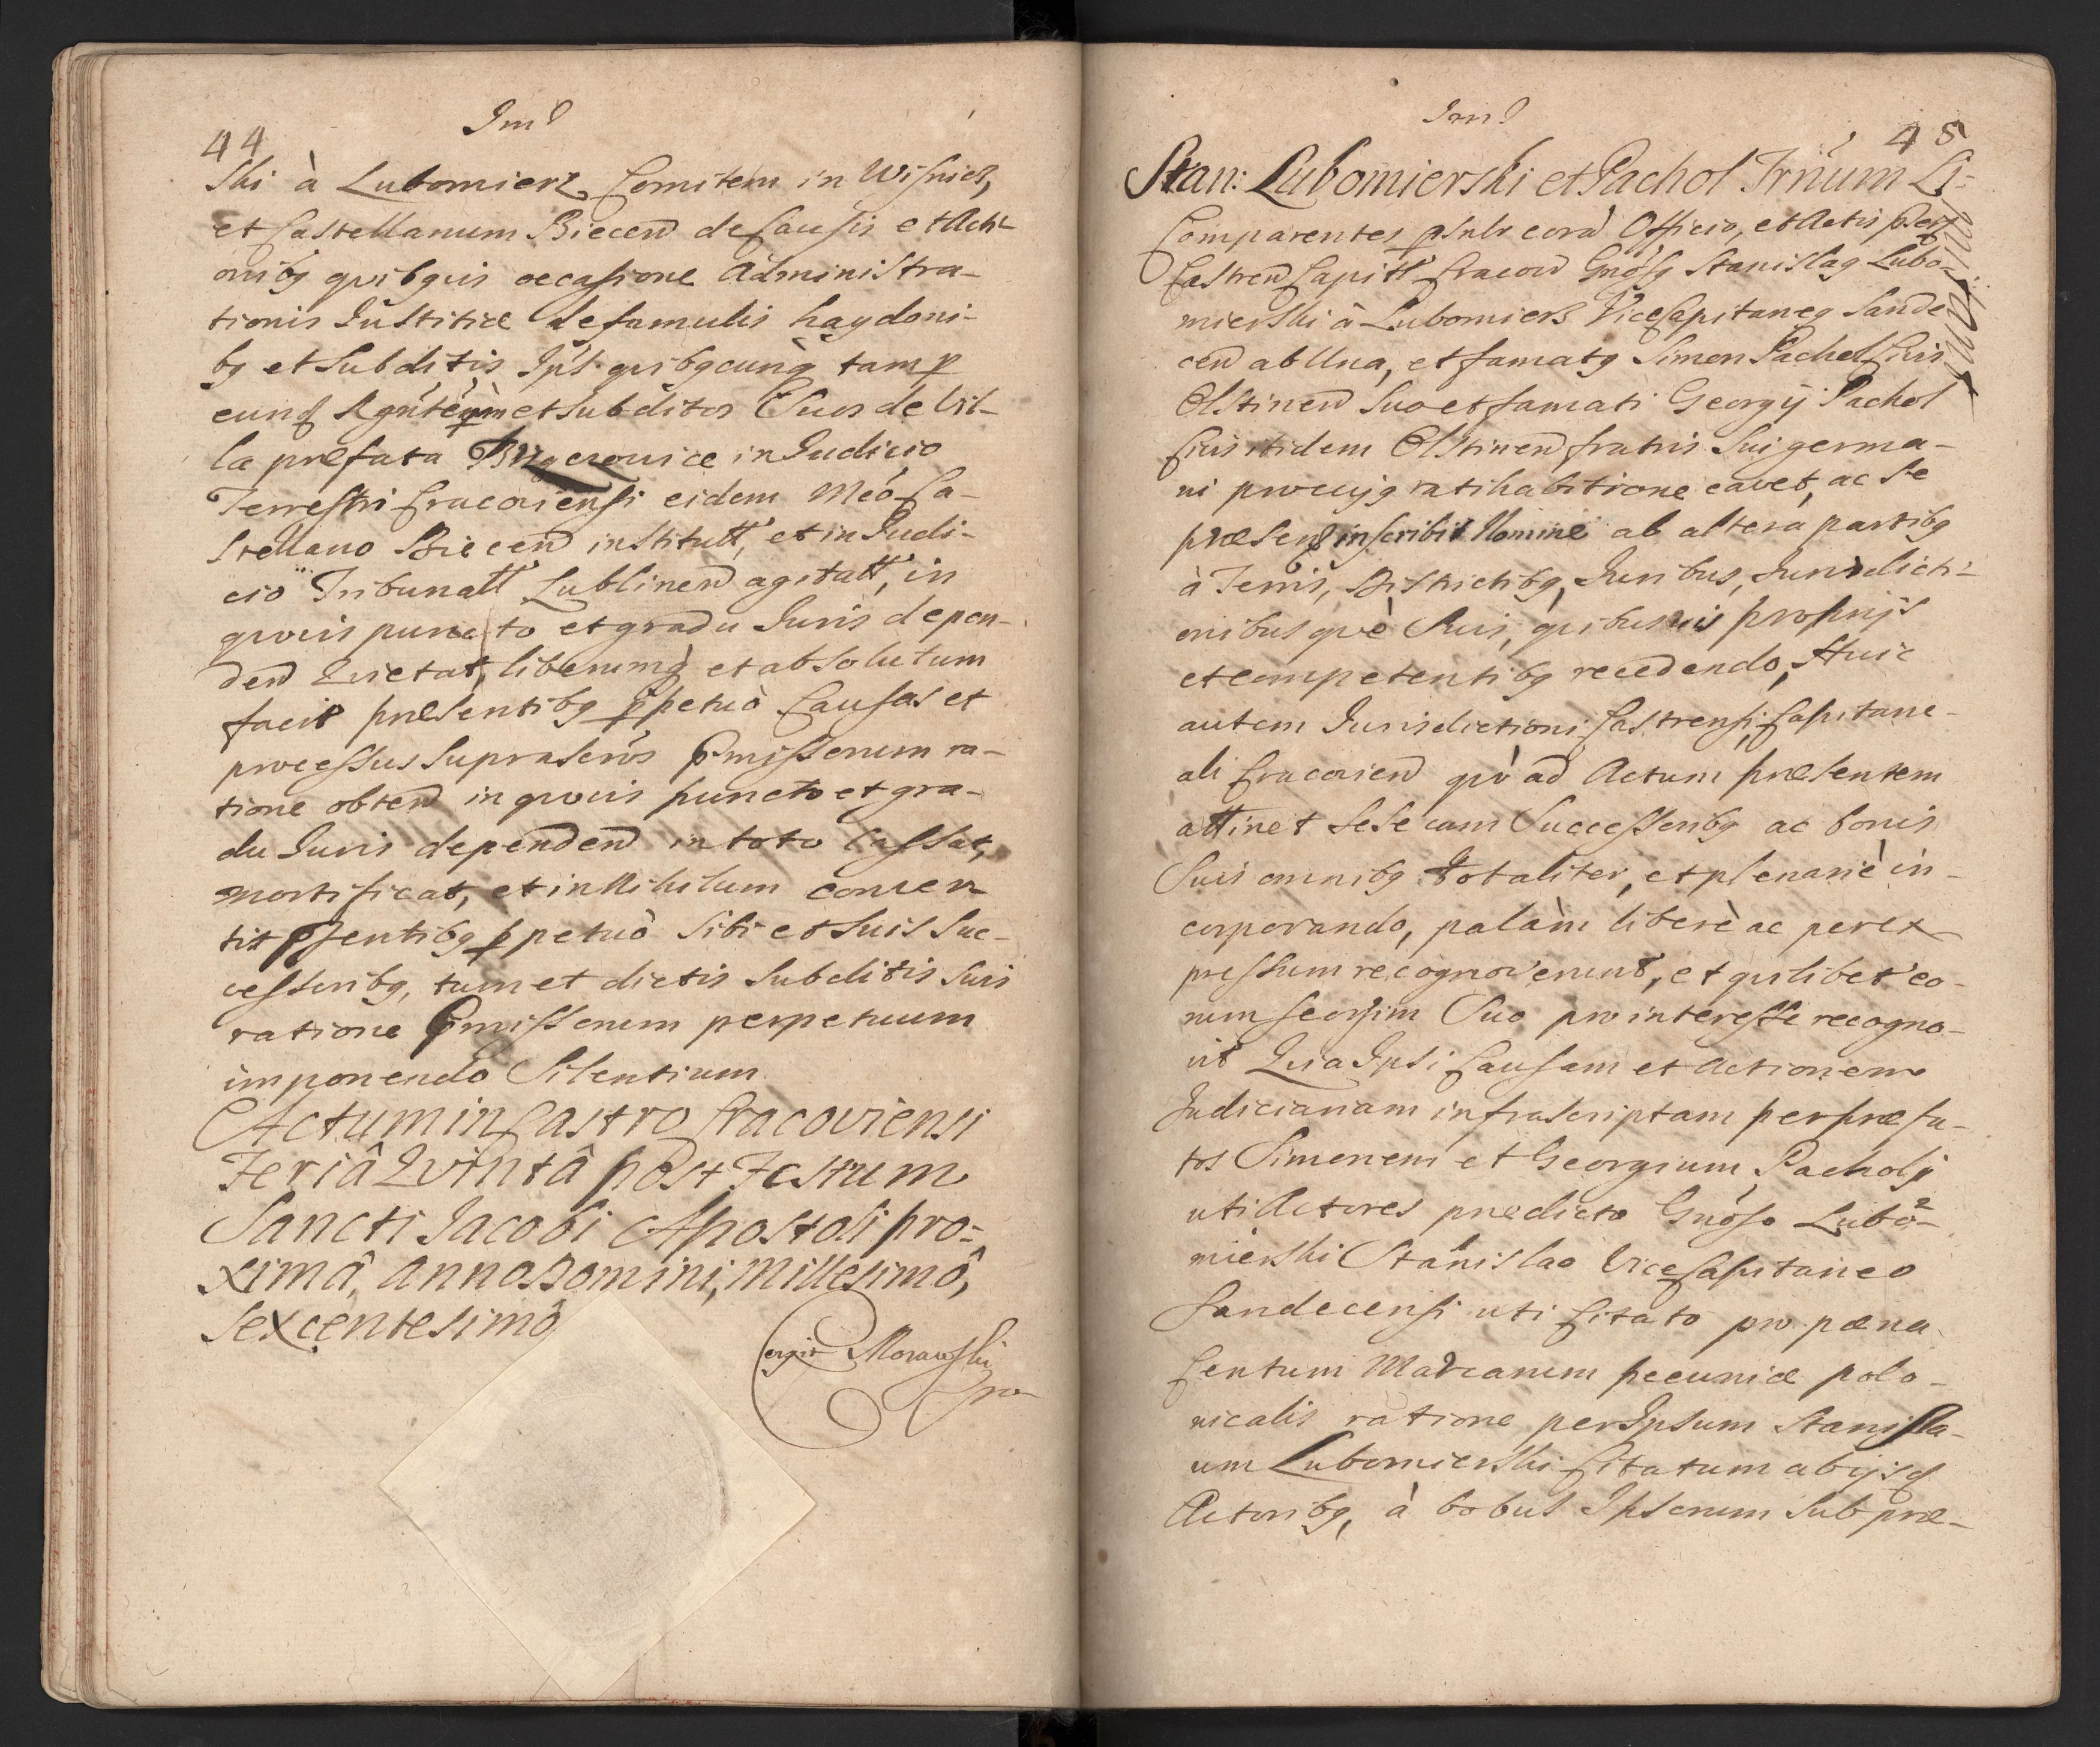 44
ski à Lubomierz Comitem in Wisnicz,
et Castellanum Biecen de Causis et Acti-
onibq quibquis occasione Administra-
tionis Justitiæ de famulis haydoni-
bq et Subditis Ips quibqcunq tam p
eund et Subditos Suos de Vil-
la præfata in Judicio
Terrestri Cracoviensi eidem Mco Ca-
stellano Biecen institutt, et in Judi-
cio Tribunall Lublinen agitatt, in
quovis puncto et gradu Juris depen-
den Quietat, liberumq et absolutum
facit præsentibq ppetuò Causas et
processus suprascrös Pmissorum ra-
tione obten in quovis puncto et gra-
du Juris dependen in toto Cassat,
mortificat, et in Nihilum conver
tit psentibq ppetuò Sibi et Suis Suc-
cessoribq, tum et dictis Subditis Suis
ratione Pmissorum perpetuum
imponendo Silentium.
Actum in Castro Cracoviensi
Feriâ Quintâ post Festum
Sancti Jacobi Apostoli pro-
ximâ, Anno Domini, Millesimô,
Sexcentesimô
Corrxit Morawski
45
Stan: Lubomierski et Pachol Irnum Li-
Comparentes psnlr corà Officio, et Actis
Castren Capitt Cracovien Gnosq Stanislaq Lubo-
mierski à Lubomierz ViceCapitaneq Sande
cen ab Una, et famatq Simon Pachol Civis
Olstinen Suo et famati Georgÿ Pachol
Civis itidem Olstinen fratris Sui germa-
ni pro cujq ratihabitione cavet, ac Se
præsen inscribit Nomine ab altera partibq
à Terris, Districtibq, Juribus, Jurisdicti-
onibusquè Suis, quibusvis proprijs
et competentibq recedendo, Huic
autem Jurisdictioni Castrensi Capitane-
ali Cracovien quò ad Actum præsentem
attinet sese cum Successoribq ac bonis
Suis omnibq totaliter, et plenariè in-
corporando, palàm liberè ac per ex-
pressum recognoverunt, et quilibet eo-
rum seorsim Suo pro interesse recogno-
vit Quia Ipsi Causam et Actionem
Judiciariam infrascriptam per præfa-
tos Simonem et Georgium Pacholÿ
uti Actores prædicto Gnoso Lubo-
mierski Stanislao ViceCapitaneo
Sandecensi uti Citato pro pæna
Centum Marcarum pecuniæ polo-
nicalis ratione per Ipsum Stanisla-
um Lubomierski Citatum ab ijsd
Actoribq, à bobus Ipsorum Sub præ-